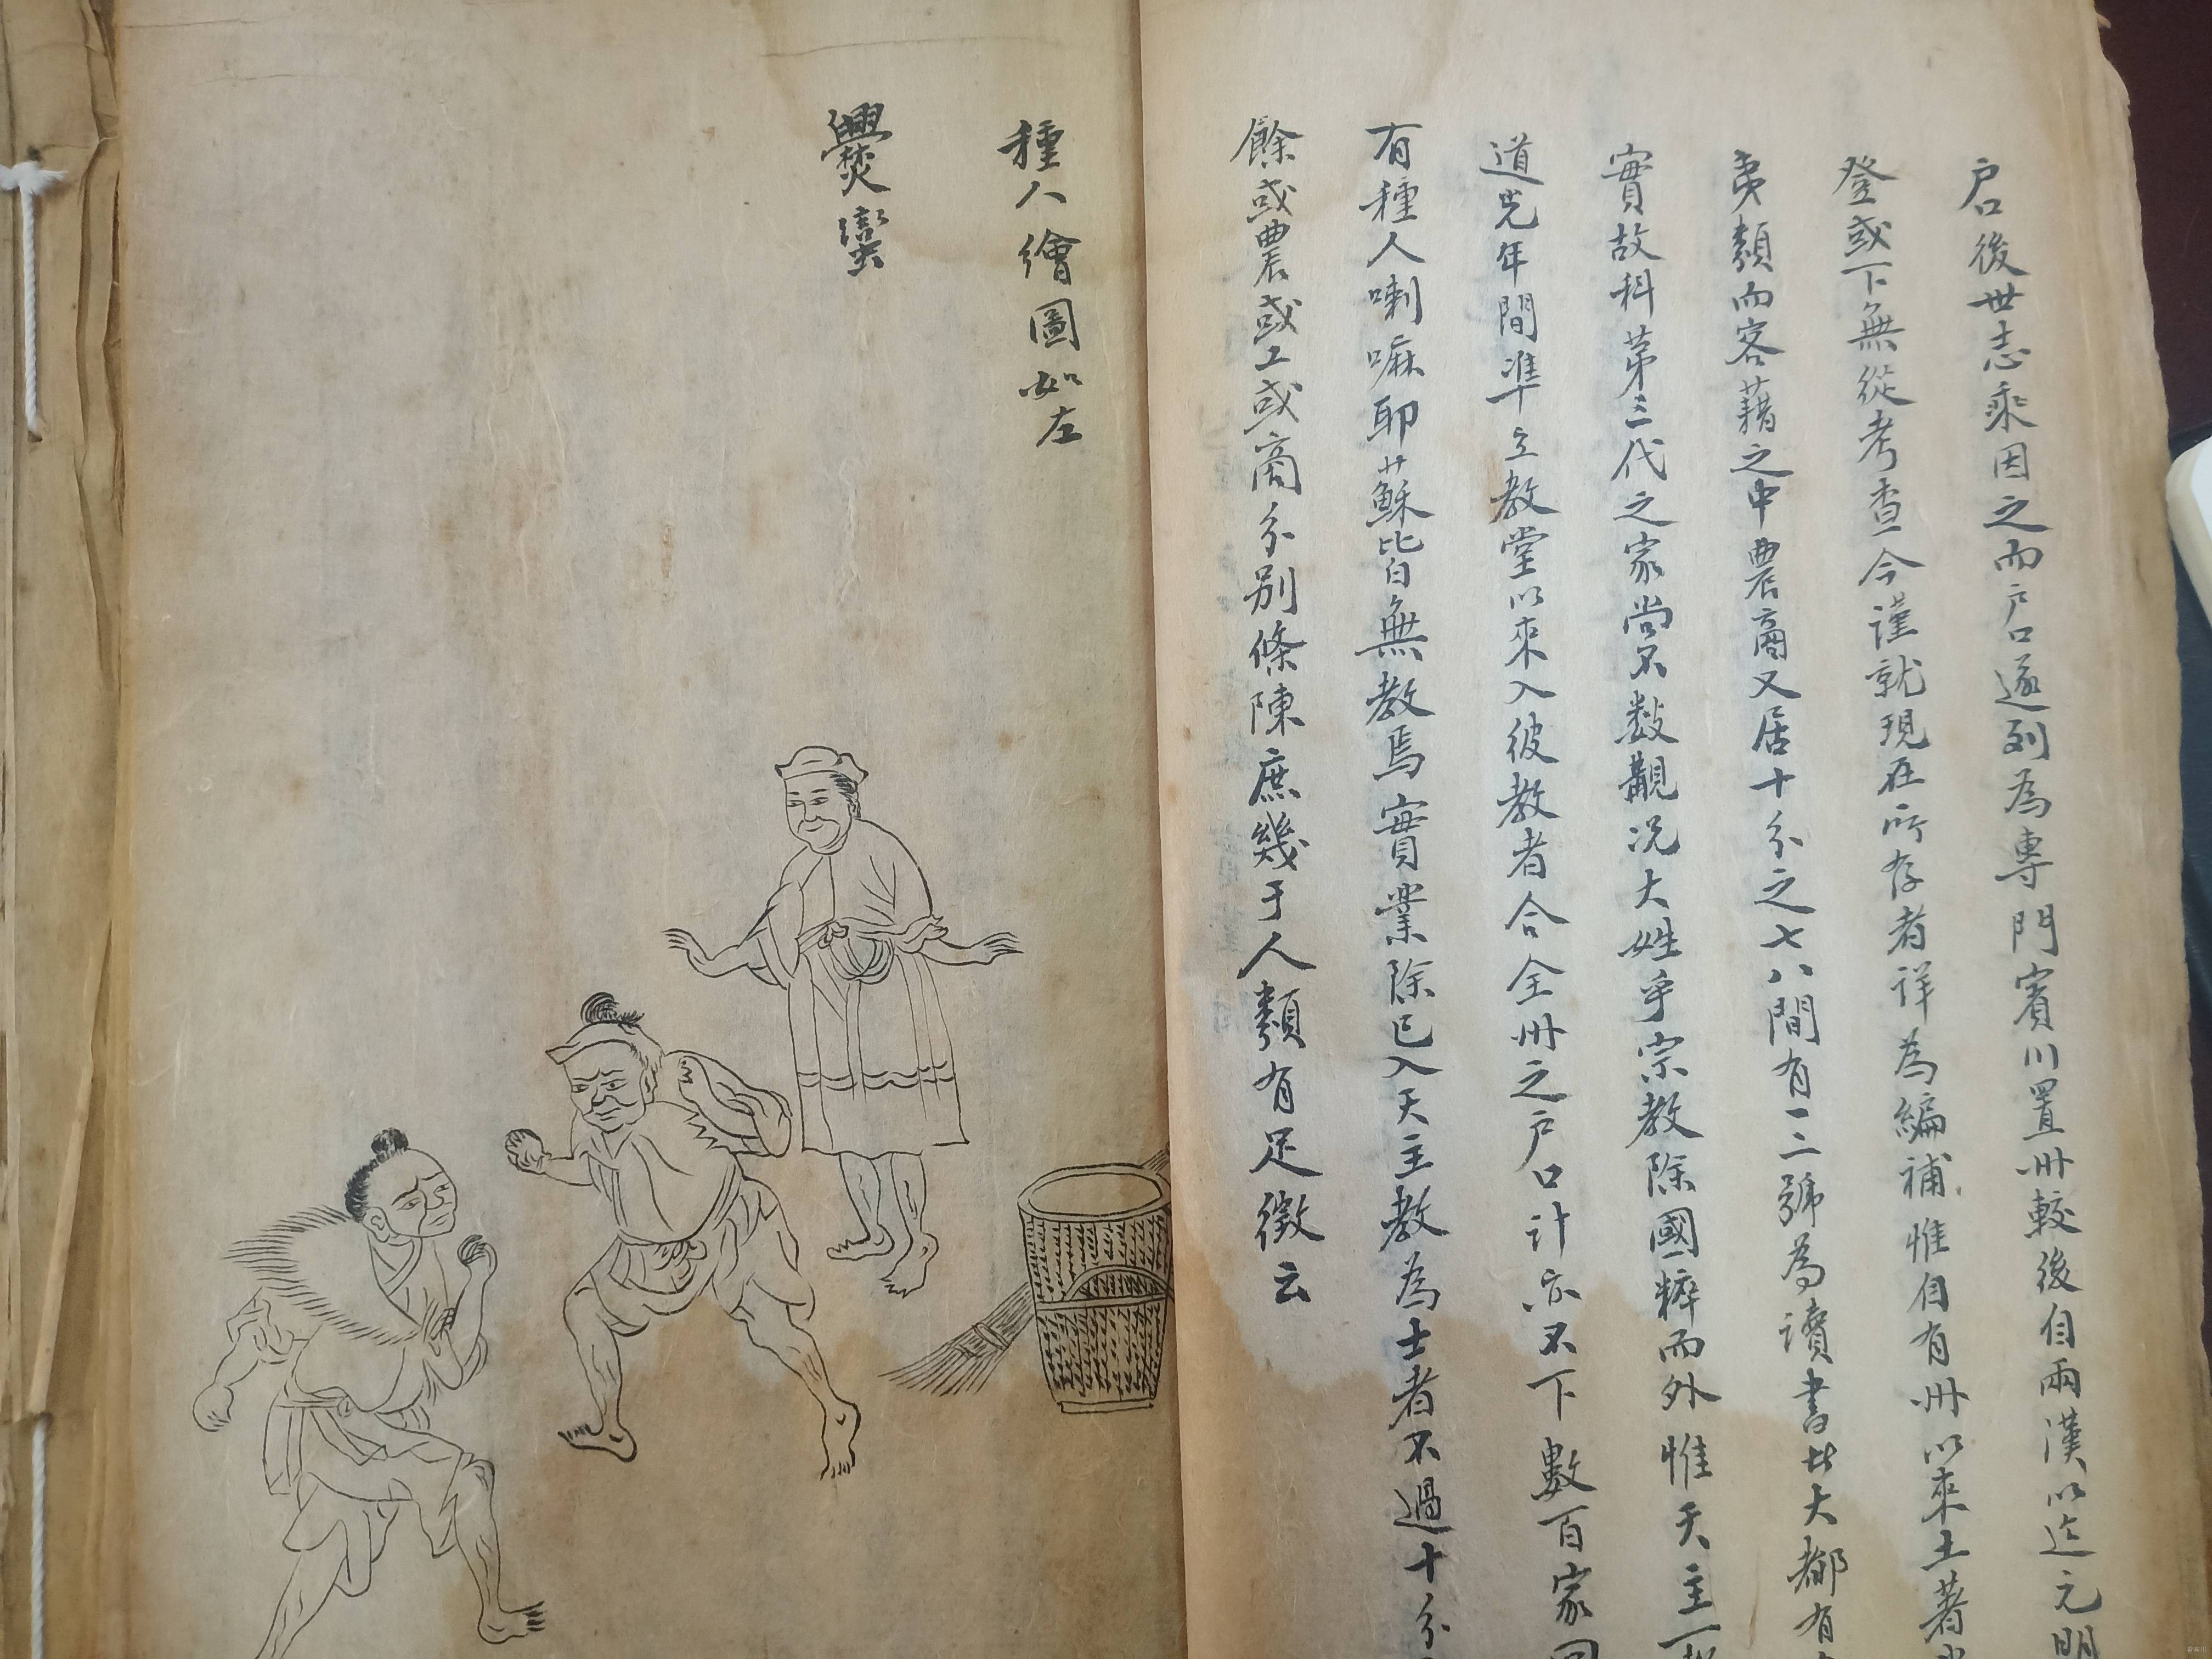 户口後世志乘因之而户口遂列為專門賓川置州較後自兩漢以迄元明
登或下無從考查今謹就現在所存者祥為編補惟自有州以來土著
夷類而客藉之中農商又居十分之七八間有一二號為讀書此大都有
實故科第三代之家尚不数觀况大姓乎宗教除國粹而外惟天主一
道光年間准立教堂以來入彼教者合全州之户口計亦不下數百家
有種人喇嘛耶蘇皆無教焉實業除已入天主教為士者不過十分
餘或農或工或商分别條陳庶幾于人類有足徵云
種人繪圖如左
爨蠻